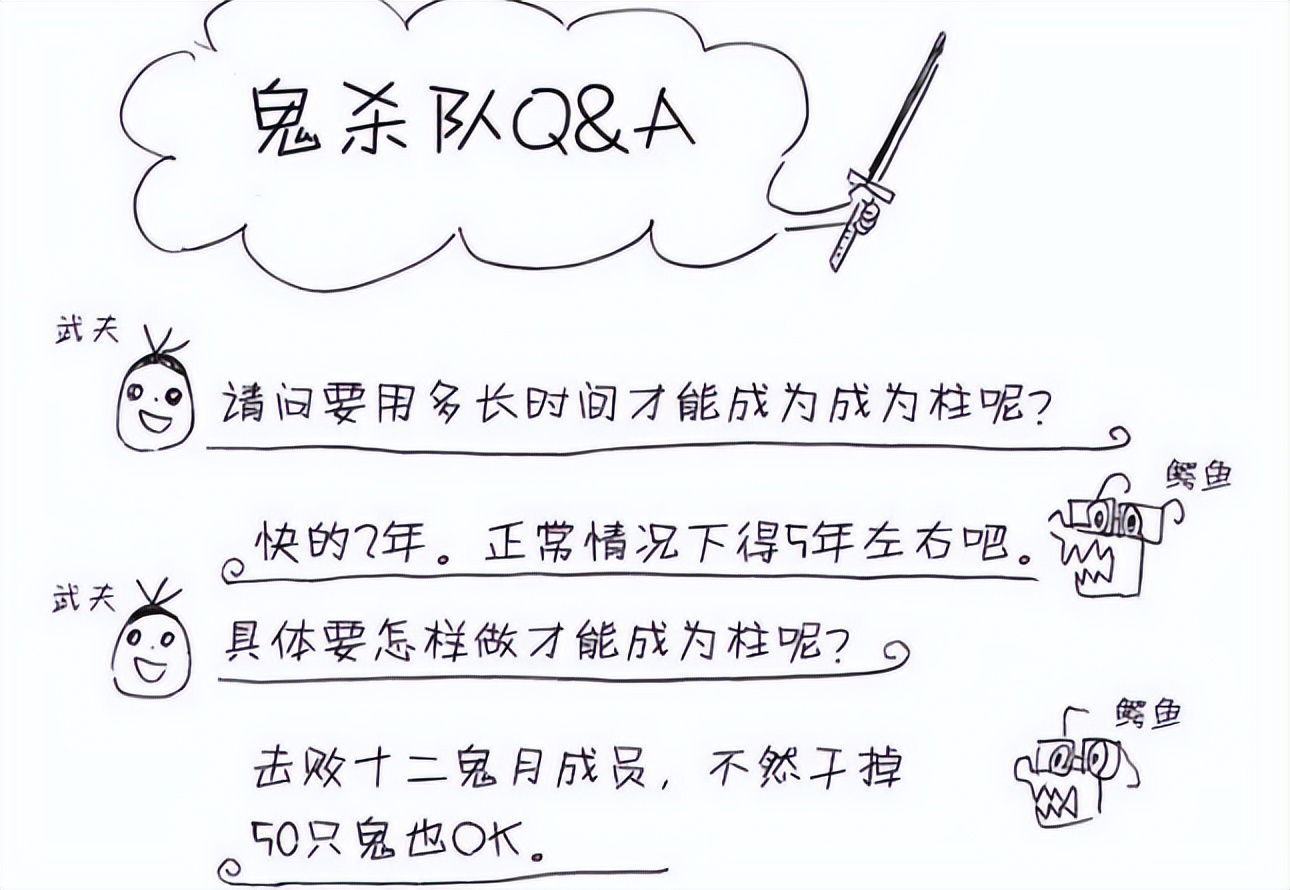 鬼杀队Q&A
武夫
请问要用多长时间才能成为成为柱呢?
鳄鱼
快的2年。正常情况下得5年左右吧。
武夫
具体要怎样做才能成为柱呢?
鳄鱼
击败十二鬼月成员,不然干掉
50只鬼也OK。